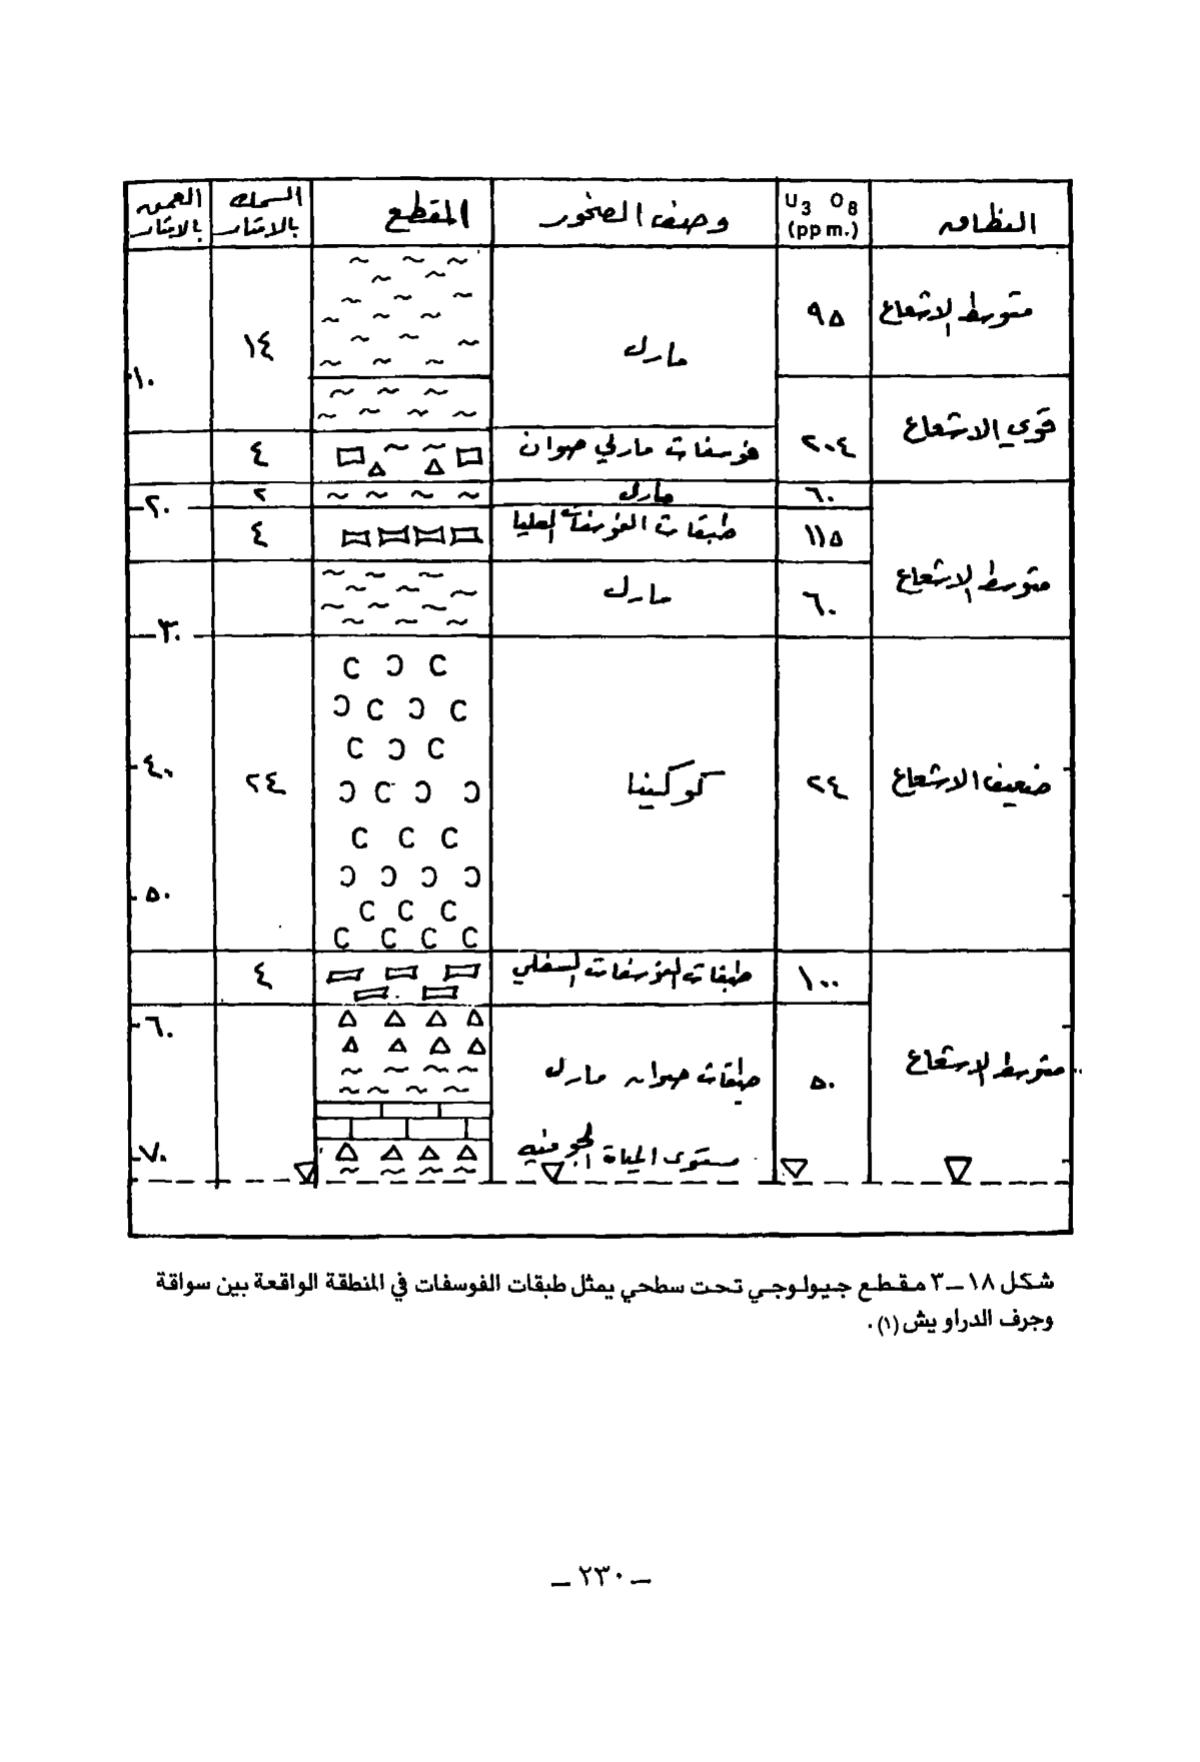 النطاق U3 O8 (ppm.) وصف الصخور المقطع السمك بالامتار العمق بالامتار
متوسط الاشعاع ٩٥ مارل ١٤
١٠
قوي الاشعاع ٢٠٤
فوسفات مارلي صوان ٤
٦٠ مارل ٢
٢٠
١١٥ طبقات الفوسفات العليا ٤
متوسط الاشعاع ٦٠ مارل
٣٠
ضعيف الاشعاع ٢٤ كوكينا ٢٤ ٤٠
٥٠
١٠٠ طبقات الفوسفات السفلي ٤
٦٠
متوسط الاشعاع ٥٠ طبقات صوان مارل
مستوى المياة الجوفيه ٧٠
شكل ١٨ـ٣ مقطع جيولوجي تحت سطحي يمثل طبقات الفوسفات في المنطقة الواقعة بين سواقة
وجرف الدراويش (١).
ـ ٢٣٠ ـ